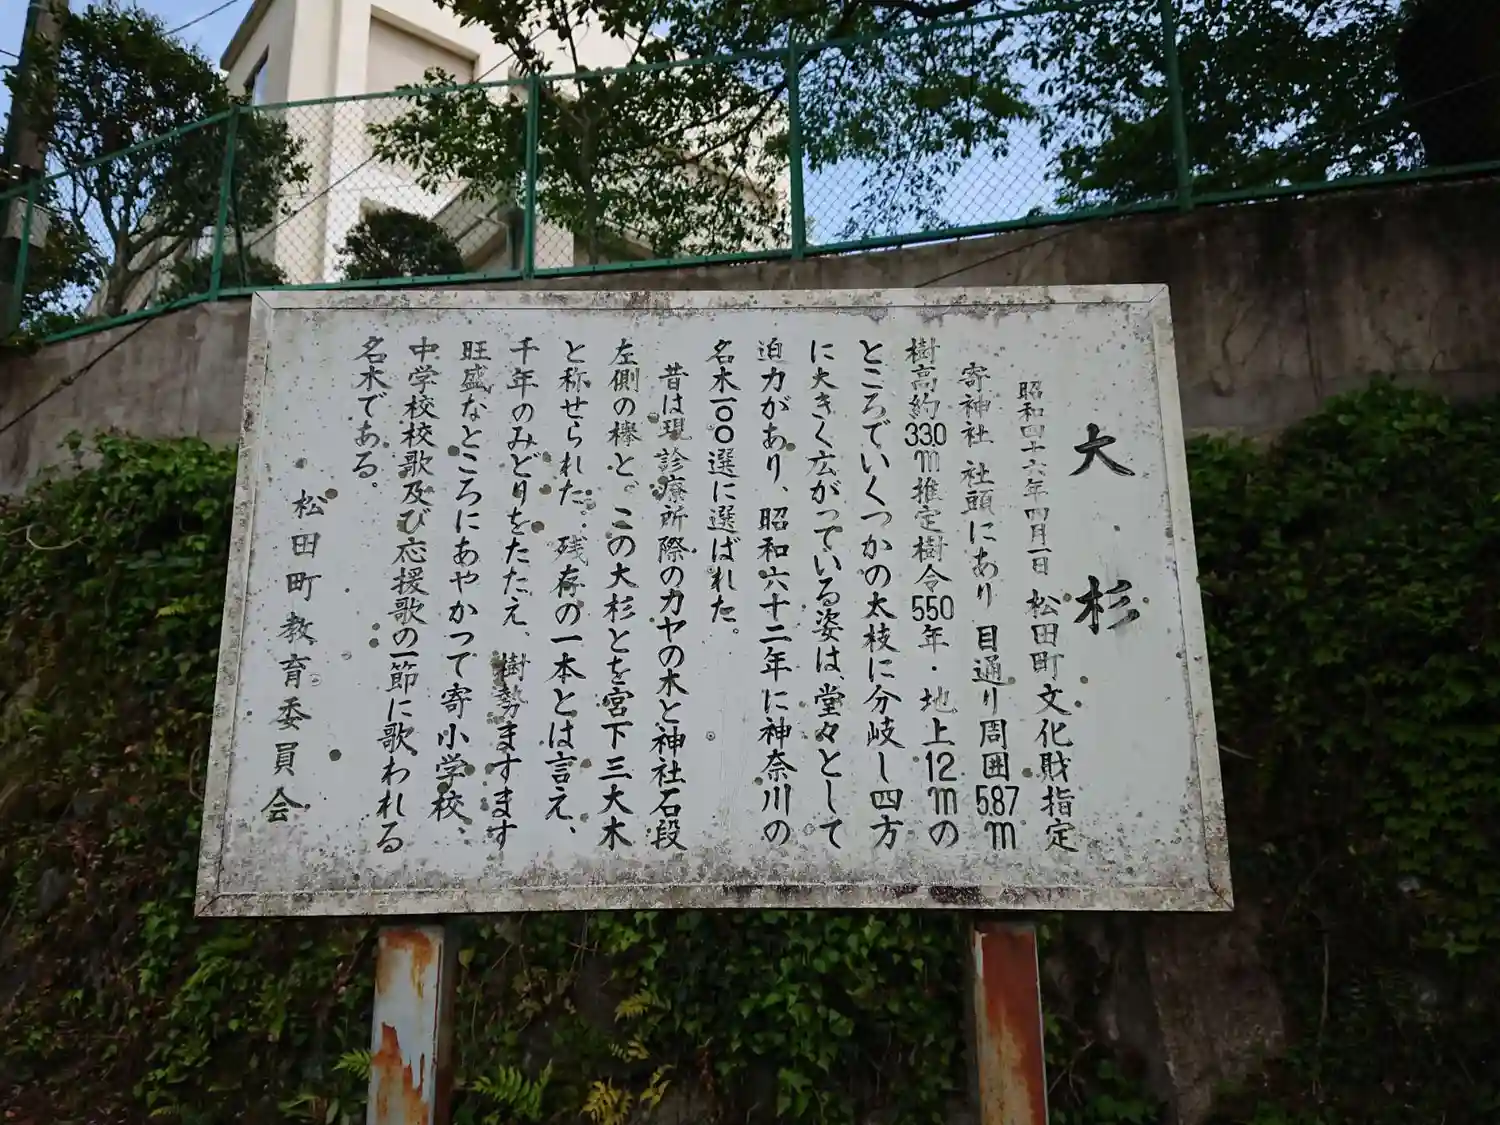 大杉
昭和四十六年四月一日 松田町文化財指定
寄神社 社頭にあり 目通り周囲5.87m
樹高約33.0m推定樹令550年・地上12mの
ところでいくつかの太枝に分岐し四方
に大きく広がっている姿は、堂々として
迫力があり、昭和六十二年に神奈川の
名木一〇〇選に選ばれた。
昔は現診療所際のカヤの木と神社石段
左側の欅と、この大杉とを宮下三大木
と称せられた。残存の一本とは言え、
千年のみどりをたたえ、樹勢ますます
旺盛なところにあやかつて寄小学校、
中学校校歌及び応援歌の一節に歌われる
名木である。
松田町教育委員会